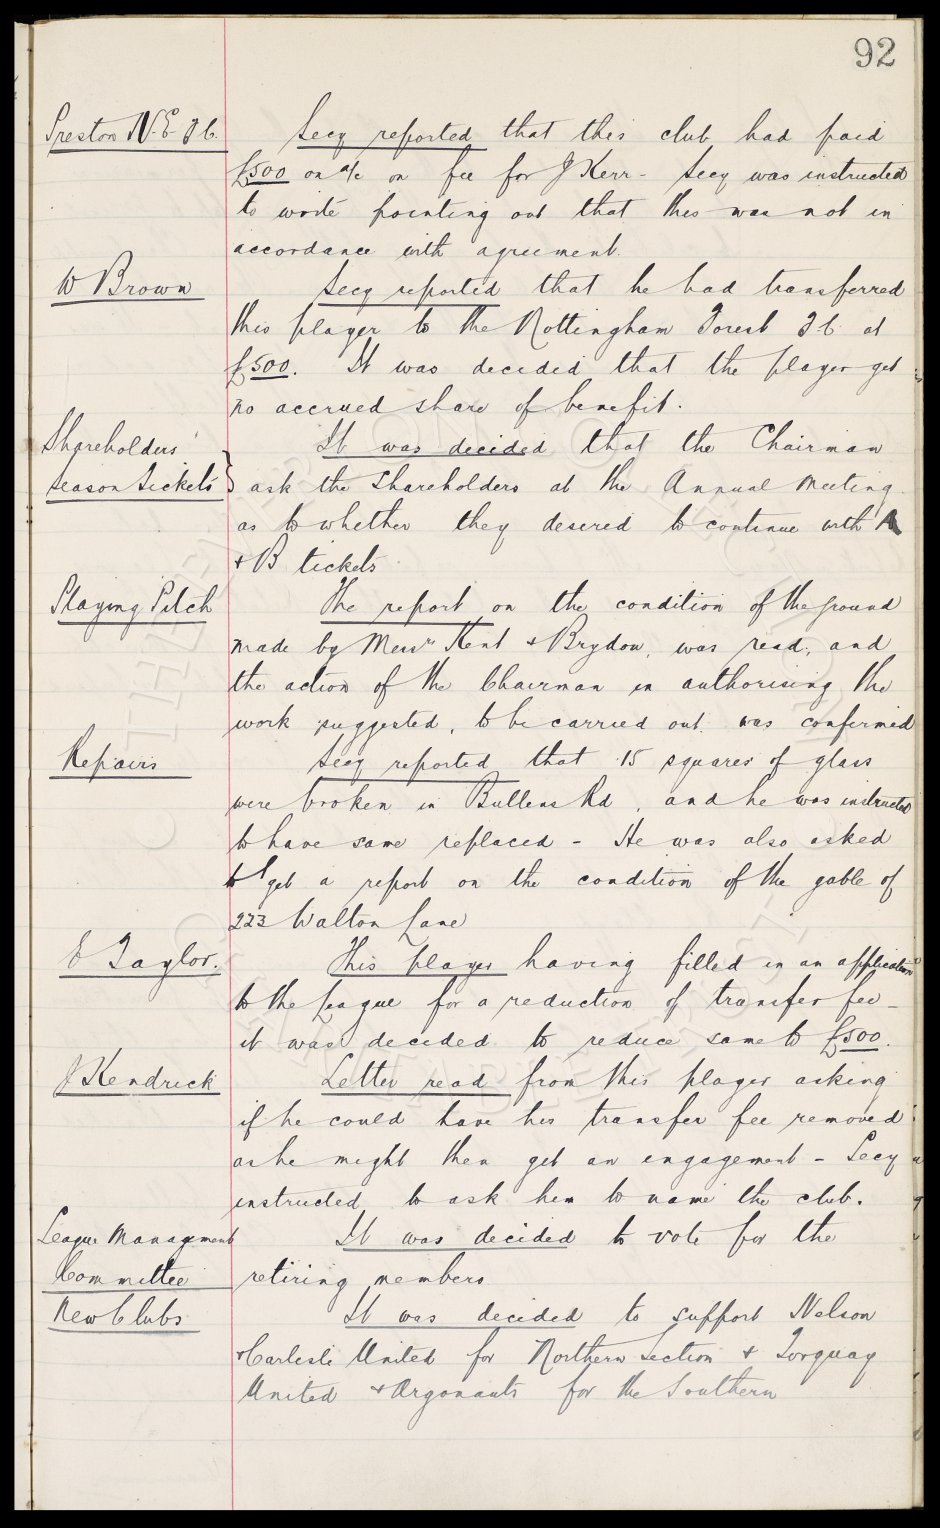 92
Preston N.E. F.C. Secy reported that this club had paid
£500 on a/c on fee for J Kerr - Secy was instructed
to write pointing out that this was not in
accordance with agreement.
W Brown Secy reported that he had transferred
this player to the Nottingham Forest F.C. at
£500. It was decided that the player get
no accrued share of benefit.
Shareholders' It was decided that the Chairman
season tickets } ask the shareholders at the Annual Meeting
as to whether they desired to continue with A
+ B tickets
Playing Pitch The report on the condition of the ground
made by Messrs Kent & Brydon, was read, and
the action of the Chairman in authorising the
work suggested, to be carried out was confirmed
Repairs Secy reported that 15 squares of glass
were broken in Bullens Rd, and he was instructed
to have same replaced - He was also asked
to get a report on the condition of the gable of
223 Walton Lane
E Taylor. This player having filled in an application
to the League for a reduction of transfer fee -
it was decided to reduce same to £500.
J Kendrick Letter read from this player asking
if he could have his transfer fee removed
as he might then get an engagement - Secy
instructed to ask him to name the club.
League Management It was decided to vote for the
Committee retiring members
New Clubs It was decided to support Nelson
+ Carlisle United for Northern Section + Torquay
United + Argonauts for the Southern